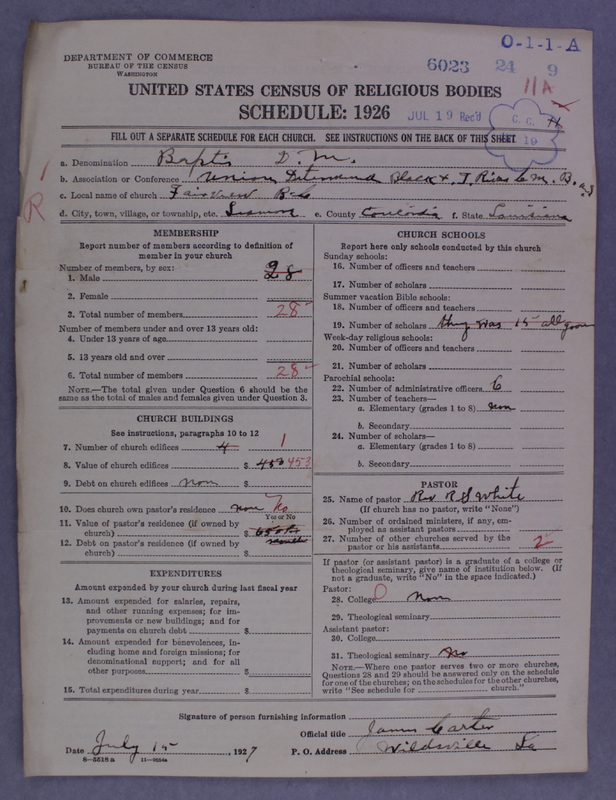 O-1-1-A
DEPARTMENT OF COMMERCE
BUREAU OF THE CENSUS
WASHINGTON
6023 24 9
11A
UNITED STATES CENSUS OF RELIGIOUS BODIES
SCHEDULE: 1926
JUL 19 Rec'd
C. C.
19
FILL OUT A SEPARATE SCHEDULE FOR EACH CHURCH. SEE INSTRUCTIONS ON THE BACK OF THIS SHEET
a. Denomination Baptis D. M.
b. Association or Conference Union Black +
c. Local name of church Fairview
d. City, town, village, or township, etc. e. County Concordia f. State Louisiana
R
MEMBERSHIP
Report number of members according to definition of member in your church
Number of members, by sex:
1. Male 28
2. Female
3. Total number of members 28
Number of members under and over 13 years old:
4. Under 13 years of age
5. 13 years old and over
6. Total number of members 28
NOTE.—The total given under Question 6 should be the same as the total of males and females given under Question 3.
CHURCH BUILDINGS
See instructions, paragraphs 10 to 12
7. Number of church edifices 4 1
8. Value of church edifices $ 453 453
9. Debt on church edifices non $
10. Does church own pastor's residence none No
Yes or No
11. Value of pastor's residence (if owned by church) $
12. Debt on pastor's residence (if owned by church) $
EXPENDITURES
Amount expended by your church during last fiscal year
13. Amount expended for salaries, repairs, and other running expenses; for improvements or new buildings; and for payments on church debt $
14. Amount expended for benevolences, including home and foreign missions; for denominational support; and for all other purposes $
15. Total expenditures during year $
CHURCH SCHOOLS
Report here only schools conducted by this church
Sunday schools:
16. Number of officers and teachers
17. Number of scholars
Summer vacation Bible schools:
18. Number of officers and teachers
19. Number of scholars they was 15 all
Week-day religious schools:
20. Number of officers and teachers
21. Number of scholars
Parochial schools:
22. Number of administrative officers 6
23. Number of teachers—
a. Elementary (grades 1 to 8) non
b. Secondary
24. Number of scholars—
a. Elementary (grades 1 to 8)
b. Secondary
PASTOR
25. Name of pastor Rev R S White
(If church has no pastor, write "None")
26. Number of ordained ministers, if any, employed as assistant pastors
27. Number of other churches served by the pastor or his assistants 2
If pastor (or assistant pastor) is a graduate of a college or theological seminary, give name of institution below. (If not a graduate, write "No" in the space indicated.)
Pastor:
28. College non
29. Theological seminary
Assistant pastor:
30. College
31. Theological seminary No
NOTE.—Where one pastor serves two or more churches, Questions 28 and 29 should be answered only on the schedule for one of the churches; on the schedules for the other churches, write "See schedule for church."
Signature of person furnishing information
Official title James Carter
Date July 15, 1927 P. O. Address Wildsville La
8-5518a 11-9554a